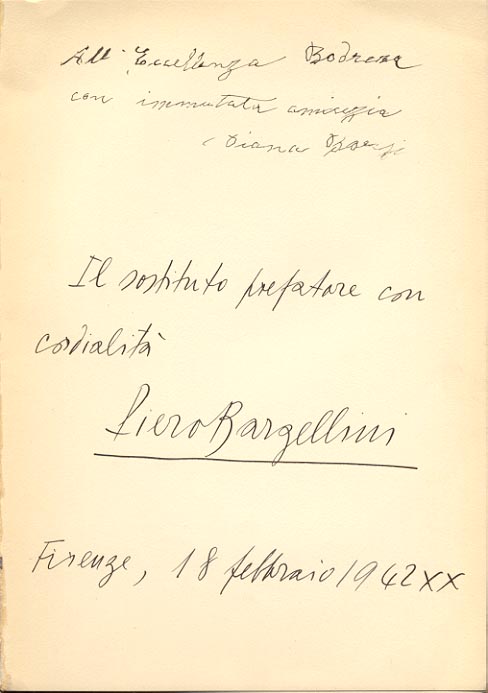 All' Eccellenza Bodrero
con immutata amicizia
Diana
Il sostituto prefatore con
cordialità
Piero Bargellini
Firenze, 18 febbraio 1942 XX